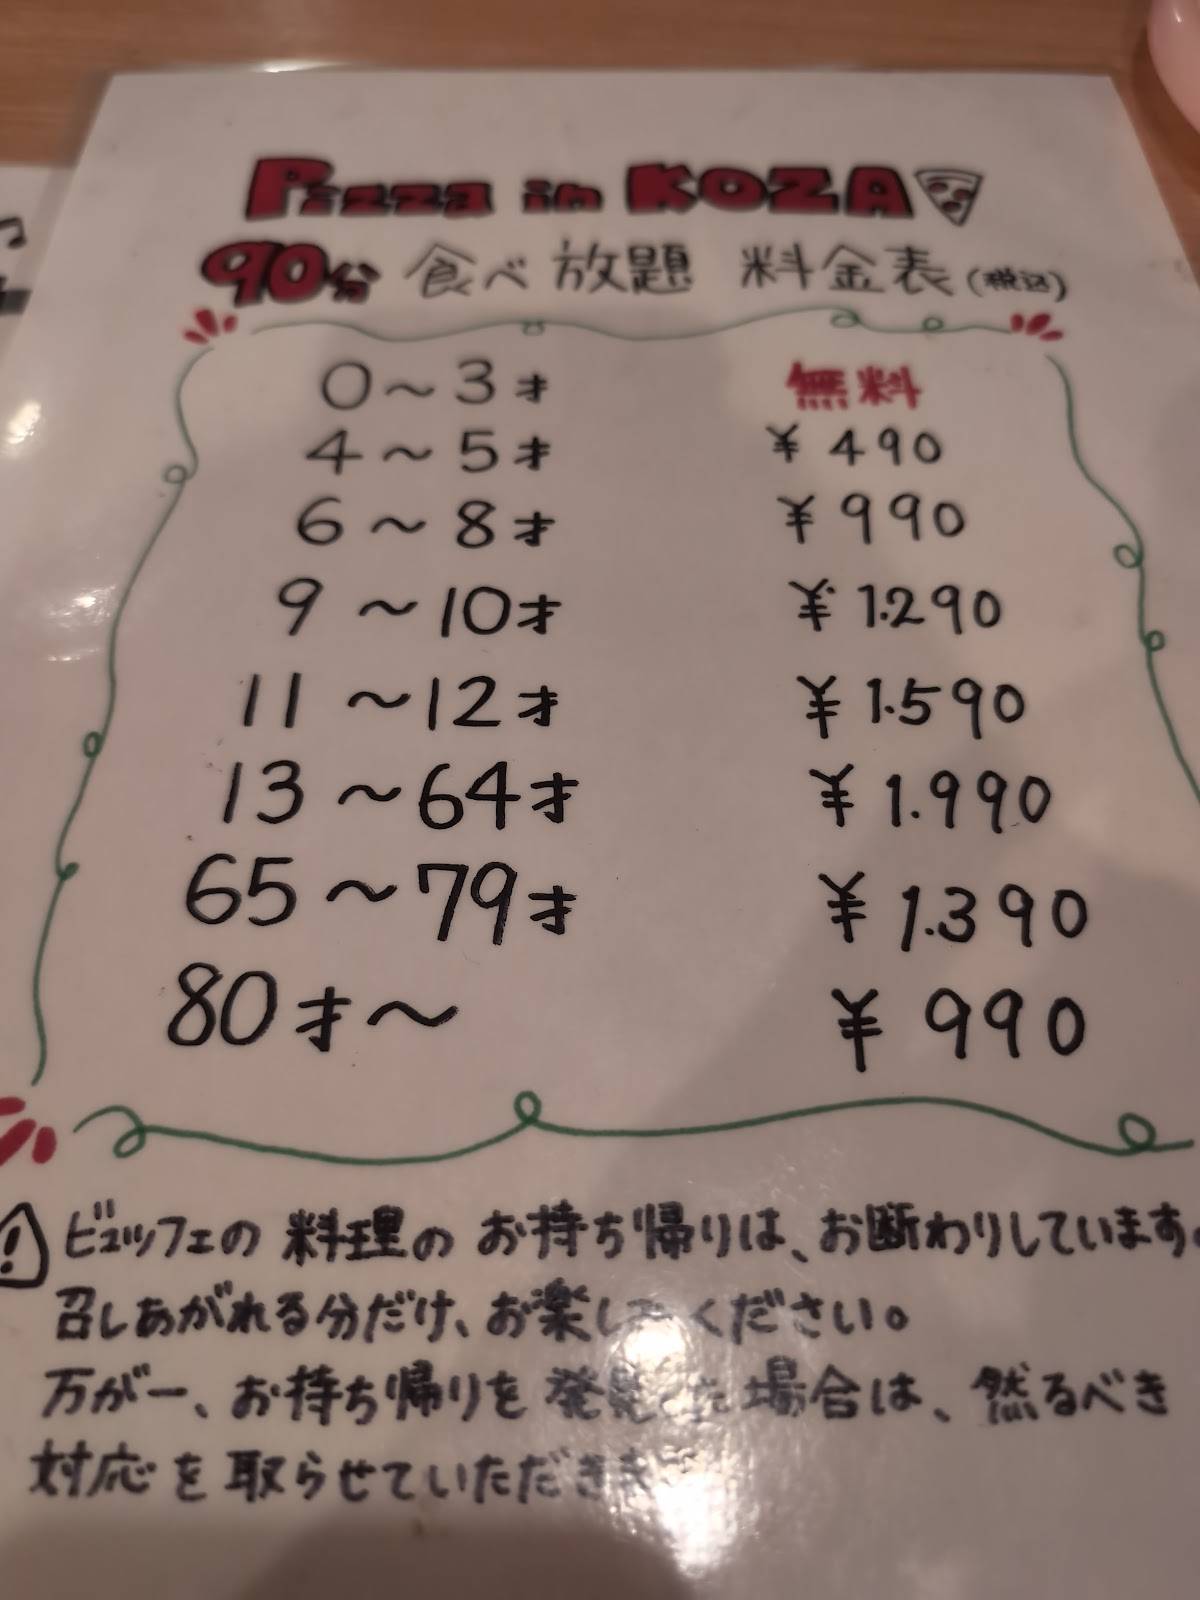 Pizza in KOZA
90分 食べ放題 料金表(税込)
0～3才 無料
4～5才 ¥490
6～8才 ¥990
9～10才 ¥1.290
11～12才 ¥1.590
13～64才 ¥1.990
65～79才 ¥1.390
80才～ ¥990
ビュッフェの料理のお持ち帰りは、お断わりしています。
召しあがれる分だけ、お楽しみください。
万が一、お持ち帰りを発見した場合は、然るべき
対応を取らせていただきま